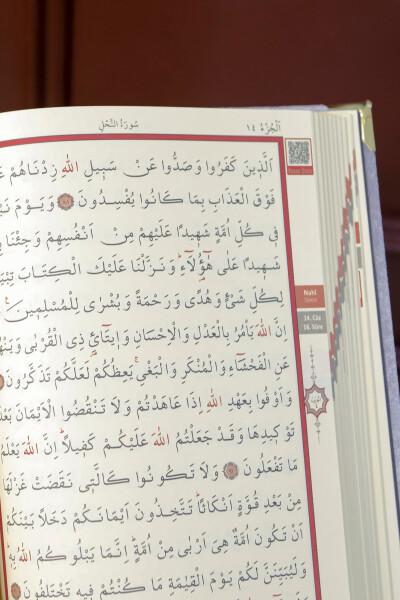 سُورَةُ النَّحْلِ
اَلْجُزْءُ ١٤
اَلَّذِينَ كَفَرُوا وَصَدُّوا عَنْ سَبِيلِ اللّٰهِ زِدْنَاهُمْ
فَوْقَ الْعَذَابِ بِمَا كَانُوا يُفْسِدُونَ ﴿٨٨﴾ وَيَوْمَ
فِى كُلِّ اُمَّةٍ شَهِيدًا عَلَيْهِمْ مِنْ اَنْفُسِهِمْ وَجِئْنَا
شَهِيدًا عَلٰى هٰٓؤُ۬لَٓاءِۜ وَنَزَّلْنَا عَلَيْكَ الْكِتَابَ
لِكُلِّ شَىْءٍ وَهُدًى وَرَحْمَةً وَبُشْرٰى لِلْمُسْلِمِينَ
اِنَّ اللّٰهَ يَأْمُرُ بِالْعَدْلِ وَالْاِحْسَانِ وَاِيتَٓائِ ذِى الْقُرْبٰى
عَنِ الْفَحْشَٓاءِ وَالْمُنْكَرِ وَالْبَغْىِۚ يَعِظُكُمْ لَعَلَّكُمْ تَذَكَّرُونَ
وَاَوْفُوا بِعَهْدِ اللّٰهِ اِذَا عَاهَدْتُمْ وَلَا تَنْقُضُوا الْاَيْمَانَ
تَوْكِيدِهَا وَقَدْ جَعَلْتُمُ اللّٰهَ عَلَيْكُمْ كَفِيلًاۜ اِنَّ اللّٰهَ
مَا تَفْعَلُونَ ﴿٩١﴾ وَلَا تَكُونُوا كَالَّتِى نَقَضَتْ غَزْلَهَا
مِنْ بَعْدِ قُوَّةٍ اَنْكَاثًاۜ تَتَّخِذُونَ اَيْمَانَكُمْ دَخَلًا بَيْنَكُمْ
اَنْ تَكُونَ اُمَّةٌ هِىَ اَرْبٰى مِنْ اُمَّةٍۜ اِنَّمَا يَبْلُوكُمُ اللّٰهُ بِهِ
وَلَيُبَيِّنَنَّ لَكُمْ يَوْمَ الْقِيٰمَةِ مَا كُنْتُمْ فِيهِ تَخْتَلِفُونَ
Nahl
Sûresi
14. Cüz
16. Sûre